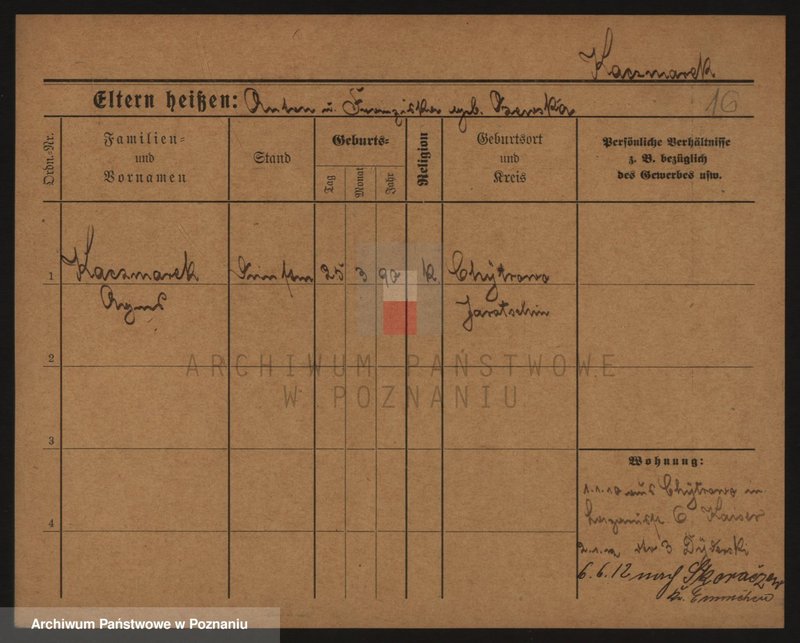 Kaczmarek
Eltern heißen: Anton u. Franziska geb.
16
Ordn.-Nr.
Familien- und Vornamen
Stand
Geburts-
Tag
Monat
Jahr
Religion
Geburtsort und Kreis
Persönliche Verhältnisse z. B. bezüglich des Gewerbes usw.
1
Kaczmarek
25 3 90 k
Chytrowo
Agnes
Jarotschin
ARCHIWUM PAŃSTWOWE
W POZNANIU
2
3
4
Wohnung:
1.1.10 aus Chytrowo in
6 Kaiser
3
6.6.12 nach
Archiwum Państwowe w Poznaniu